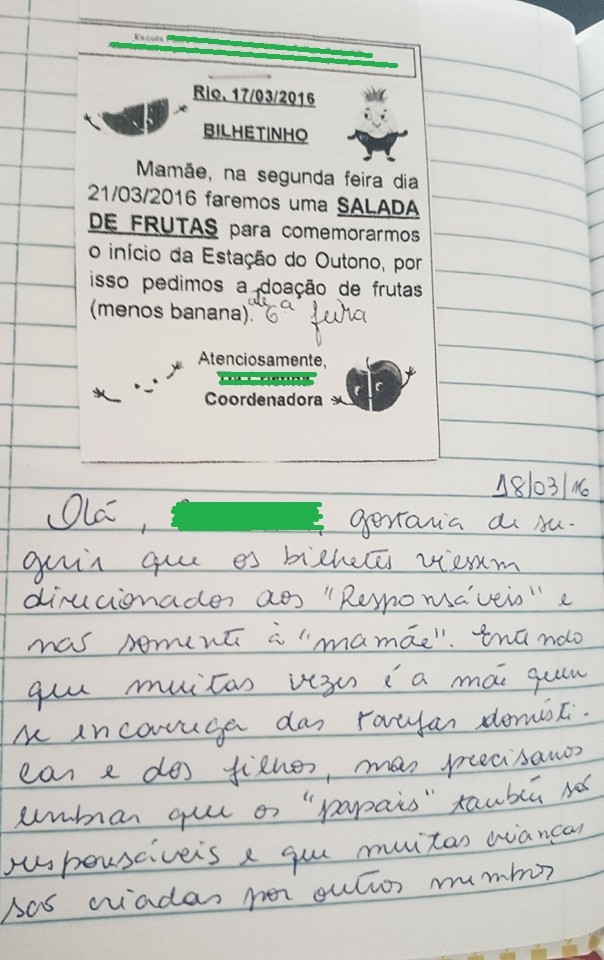 Escola
Rio, 17/03/2016
BILHETINHO
Mamãe, na segunda feira dia
21/03/2016 faremos uma SALADA
DE FRUTAS para comemorarmos
o início da Estação do Outono, por
isso pedimos a doação de frutas
(menos banana). até 6ª feira
Atenciosamente,
Coordenadora
18/03/16
Olá, , gostaria de su-
gerir que os bilhetes viessem
direcionados aos "Responsáveis" e
não somente à "mamãe". Entendo
que muitas vezes é a mãe quem
se encarrega das tarefas domésti-
cas e dos filhos, mas precisamos
lembrar que os "papais" também são
responsáveis e que muitas crianças
são criadas por outros membros